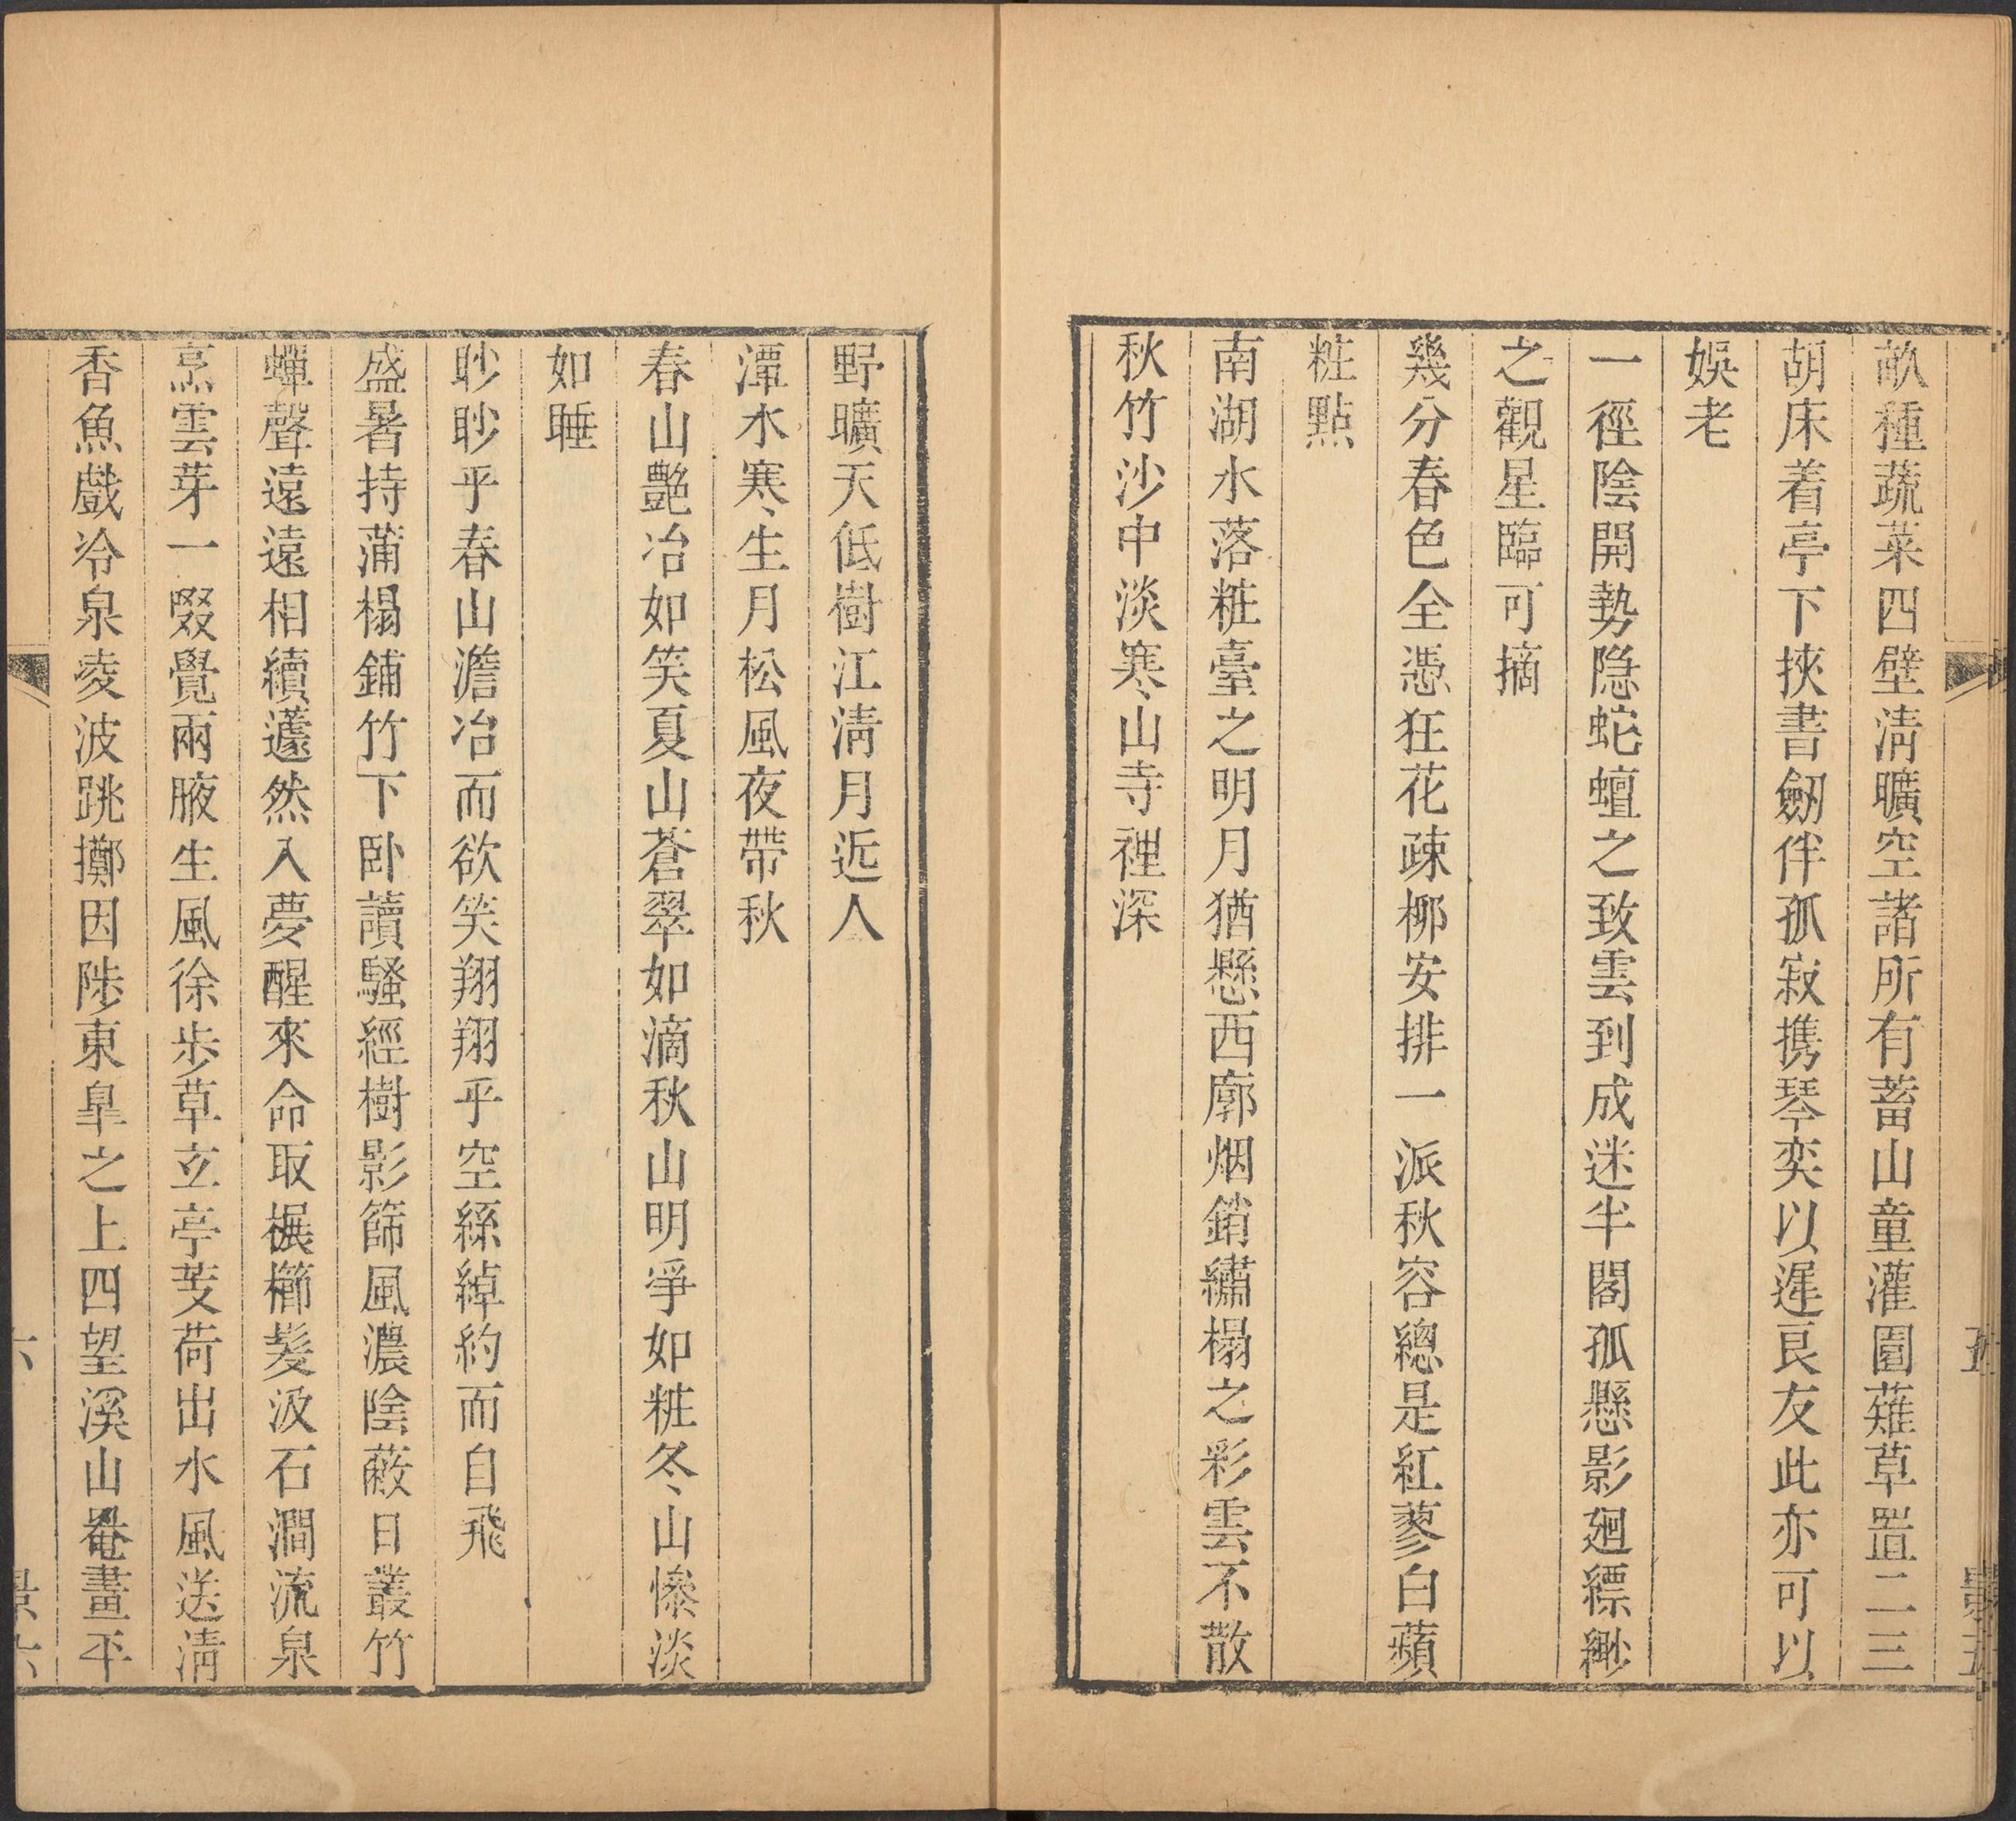 畝種蔬菜四壁清曠空諸所有蓄山童灌園薙草置二三
胡床着亭下挾書劒伴孤寂携琴奕以遲良友此亦可以
娛老
一徑陰開勢隐蛇蟺之致雲到成迷半閣孤懸影廻縹緲
之觀星臨可摘
幾分春色全憑狂花疎柳安排一派秋容總是紅蓼白蘋
粧點
南湖水落粧臺之明月猶懸西廓烟銷繡榻之彩雲不散
秋竹沙中淡寒山寺裡深
野曠天低樹江清月近人
潭水寒生月松風夜帶秋
春山艷冶如笑夏山蒼翠如滴秋山明爭如粧冬山慘淡
如睡
眇眇乎春山澹冶而欲笑翔翔乎空絲綽約而自飛
盛暑持蒲榻鋪竹下卧讀騷經樹影篩風濃陰蔽日叢竹
蟬聲遠遠相續蘧然入夢醒來命取榐櫛髮汲石澗流泉
烹雲芽一啜覺兩腋生風徐步草玄亭芰荷出水風送清
香魚戲冷泉凌波跳擲因陟東臯之上四望溪山罨畫平
五
景五
六
景六